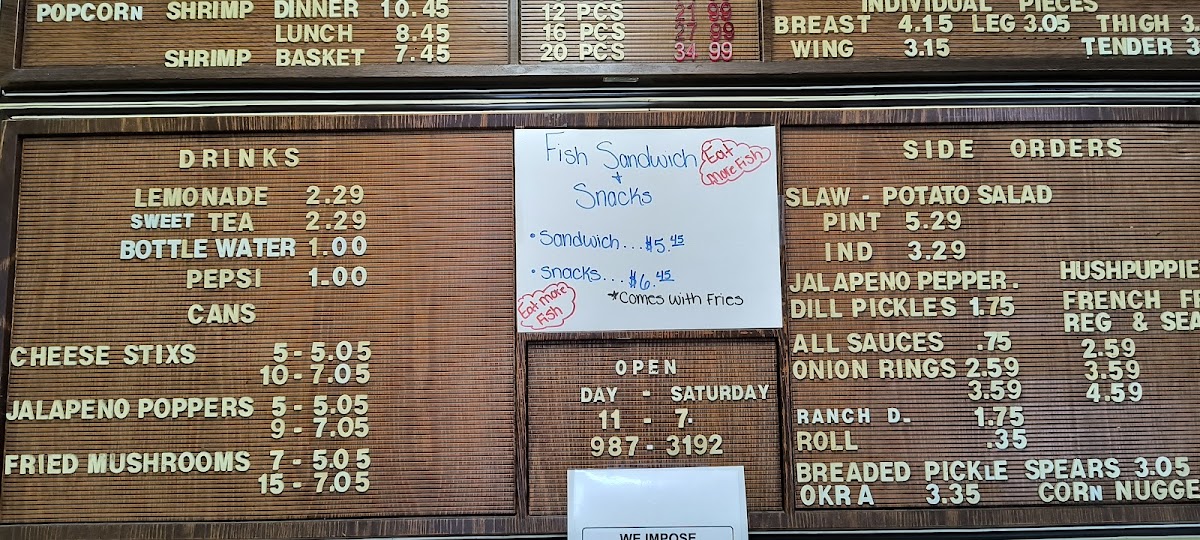 POPCORN SHRIMP DINNER 10.45
LUNCH 8.45
SHRIMP BASKET 7.45
12 PCS 21 99
16 PCS 27 99
20 PCS 34 99
INDIVIDUAL PIECES
BREAST 4.15 LEG 3.05 THIGH
WING 3.15 TENDER
DRINKS
LEMONADE 2.29
SWEET TEA 2.29
BOTTLE WATER 1.00
PEPSI 1.00
CANS
CHEESE STIXS 5 - 5.05
10 - 7.05
JALAPENO POPPERS 5 - 5.05
9 - 7.05
FRIED MUSHROOMS 7 - 5.05
15 - 7.05
Fish Sandwich
+
Snacks
Eat
more Fish
• Sandwich... $5.45
• snacks... $6.45
*Comes with Fries
Eat more
Fish
OPEN
DAY - SATURDAY
11 - 7.
987 - 3192
WE IMPOSE
SIDE ORDERS
SLAW - POTATO SALAD
PINT 5.29
IND 3.29
JALAPENO PEPPER.
DILL PICKLES 1.75
ALL SAUCES .75
ONION RINGS 2.59
3.59
RANCH D. 1.75
ROLL .35
HUSHPUPPIE
FRENCH F
REG & SEA
2.59
3.59
4.59
BREADED PICKLE SPEARS 3.05
OKRA 3.35 CORN NUGGE